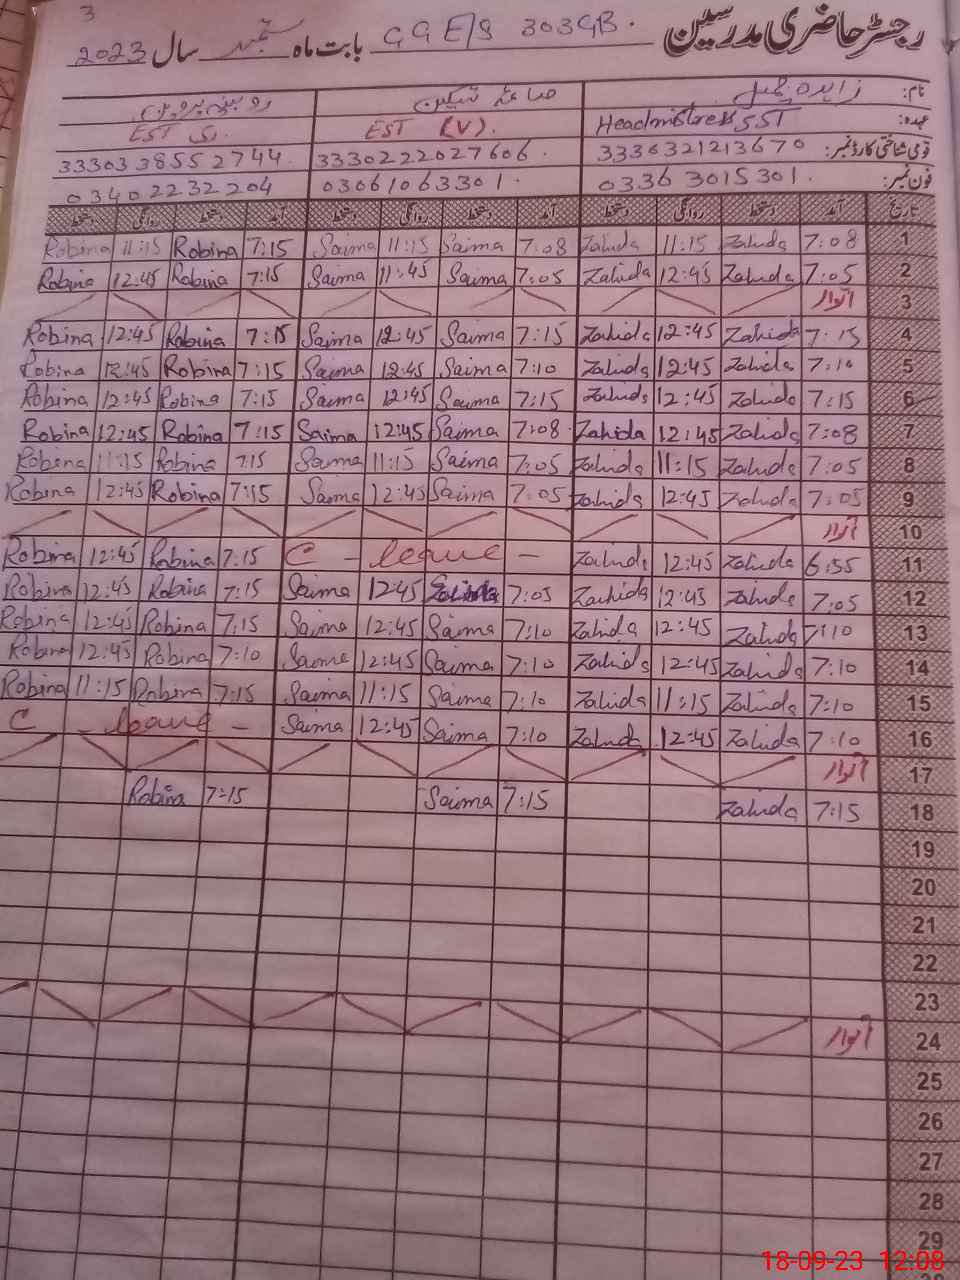 3
رجسٹر حاضری مدرسین GGE/S 303GB. بابت ماہ ستمبر سال 2023
نام: زاہدہ صائمہ روبینہ پروین
عہدہ: Headmistress SST EST (V). EST
قومی شناختی کارڈ نمبر: 3330321213670 3330222027606. 3330338552744.
فون نمبر: 03363015301. 03061063301. 03402232204
تاریخ آمد دستخط روانگی دستخط آمد دستخط روانگی دستخط آمد دستخط روانگی دستخط
1 7:08 Zahida 11:15 Zahida 7:08 Saima 11:15 Saima 7:15 Robina 11:15 Robina
2 7:05 Zahida 12:45 Zahida 7:05 Saima 11:45 Saima 7:15 Robina 12:45 Robina
3 اتوار
4 7:15 Zahida 12:45 Zahida 7:15 Saima 12:45 Saima 7:15 Robina 12:45 Robina
5 7:10 Zahida 12:45 Zahida 7:10 Saima 12:45 Saima 7:15 Robina 12:45 Robina
6 7:15 Zahida 12:45 Zahida 7:15 Saima 12:45 Saima 7:15 Robina 12:45 Robina
7 7:08 Zahida 12:45 Zahida 7:08 Saima 12:45 Saima 7:15 Robina 12:45 Robina
8 7:05 Zahida 11:15 Zahida 7:05 Saima 11:15 Saima 7:15 Robina 11:15 Robina
9 7:05 Zahida 12:45 Zahida 7:05 Saima 12:45 Saima 7:15 Robina 12:45 Robina
10 اتوار
11 6:55 Zahida 12:45 Zahida C - leave - 7:15 Robina 12:45 Robina
12 7:05 Zahida 12:45 Zahida 7:05 12:45 Saima 7:15 Robina 12:45 Robina
13 7:10 Zahida 12:45 Zahida 7:10 Saima 12:45 Saima 7:15 Robina 12:45 Robina
14 7:10 Zahida 12:45 Zahida 7:10 Saima 12:45 Saima 7:10 Robina 12:45 Robina
15 7:10 Zahida 11:15 Zahida 7:10 Saima 11:15 Saima 7:15 Robina 11:15 Robina
16 7:10 Zahida 12:45 Zahida 7:10 Saima 12:45 Saima C - leave -
17 اتوار
18 7:15 Zahida 7:15 Saima 7:15 Robina
19
20
21
22
23
24 اتوار
25
26
27
28
29
18-09-23 12:08